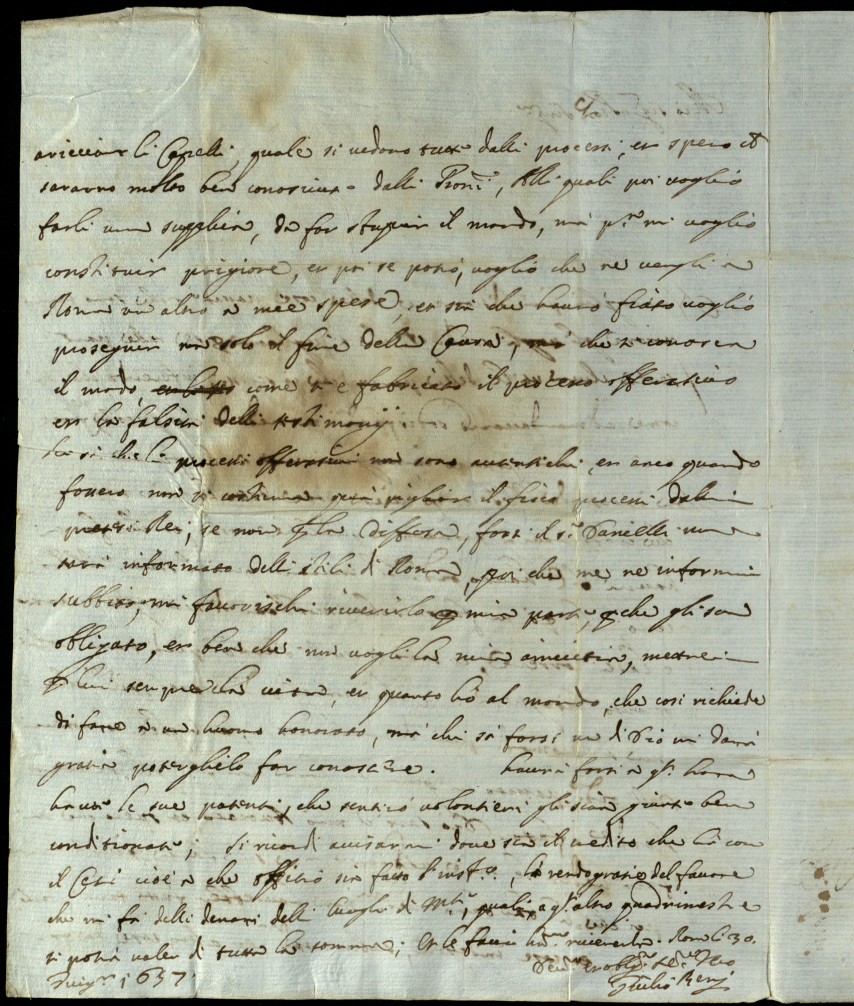 aricciar li Capelli, quale si vedono tutti dalli processi, et spero che
saranno molto ben conosciuti dalli Proni, Alli quali poi voglio
farli una supplica, da far stupir il mondo, ma pri.a mi voglio
constituir prigione, et poi se potrò, voglio che ne venghi a
Roma un altro a mie spese, et sin che haurò fiato voglio
proseguir non solo il fine della Causa, ma che si conosca
il modo, come si è fabricato il processo offensivo
et la falsità delli testimonij
so si che li processi offensivi non sono autentichi, et anco quando
fossero non si costuma quà pigliar il fisco processi dalli
pretesi Rei, se non la diffesa, forsi il s.r Vanelli non
sarà informato delli stili di Roma, poi che me ne informi
subbito, mi favorischi riverirlo mia parte, che gli son
obligato, et ben che non voglia la mia amicitia, metterei
lui sempre la vita, et quanto hò al mondo, che cosi richiede
di fare a un huomo honorato, ma chi sà forsi un dì Dio mi darà
gratia poterghelo far conoscere. haurà forsi a q.ta hora
hauto le sue patenti, che sentirò volontieri gli sian giunte ben
conditionate; si ricordi avisarmi dove sia il credito che hà con
il Cesi cioè a che offitio sia fatto l'inst.o, le rendo gratie del favore
che mi fà delli denari delli luoghi di M.ti, quali a q.to altro quadrimestre
si potrà valer di tutta la somma; et le faccio hum. riverenza. Roma li 30.
Giug.o 1637 et obblig. ser.
Giulio